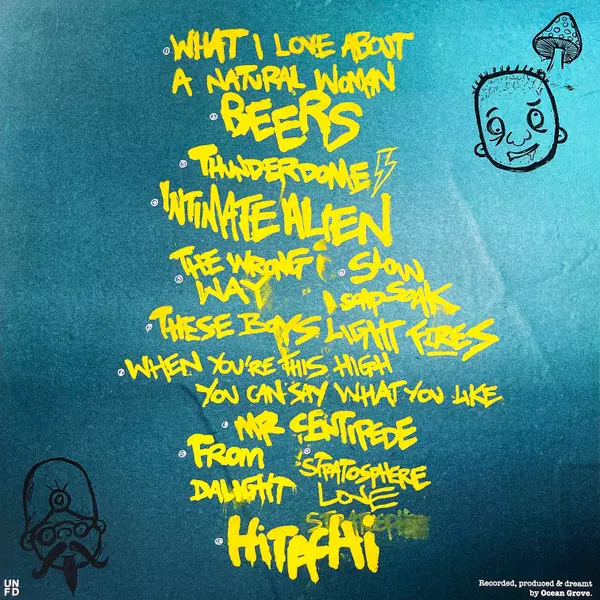 WHAT I LOVE ABOUT
A NATURAL WOMAN
BEERS
THUNDERDOME
INTIMATE ALIEN
THE WRONG
WAY
SLOW
SOAP SOAK
THESE BOYS LIGHT FIRES
WHEN YOU'RE THIS HIGH
YOU CAN SAY WHAT YOU LIKE
MR CENTIPEDE
FROM
DALIGHT
STRATOSPHERE
LOVE
HiTACHi
UN
FD
Recorded, produced & dreamt
by Ocean Grove.